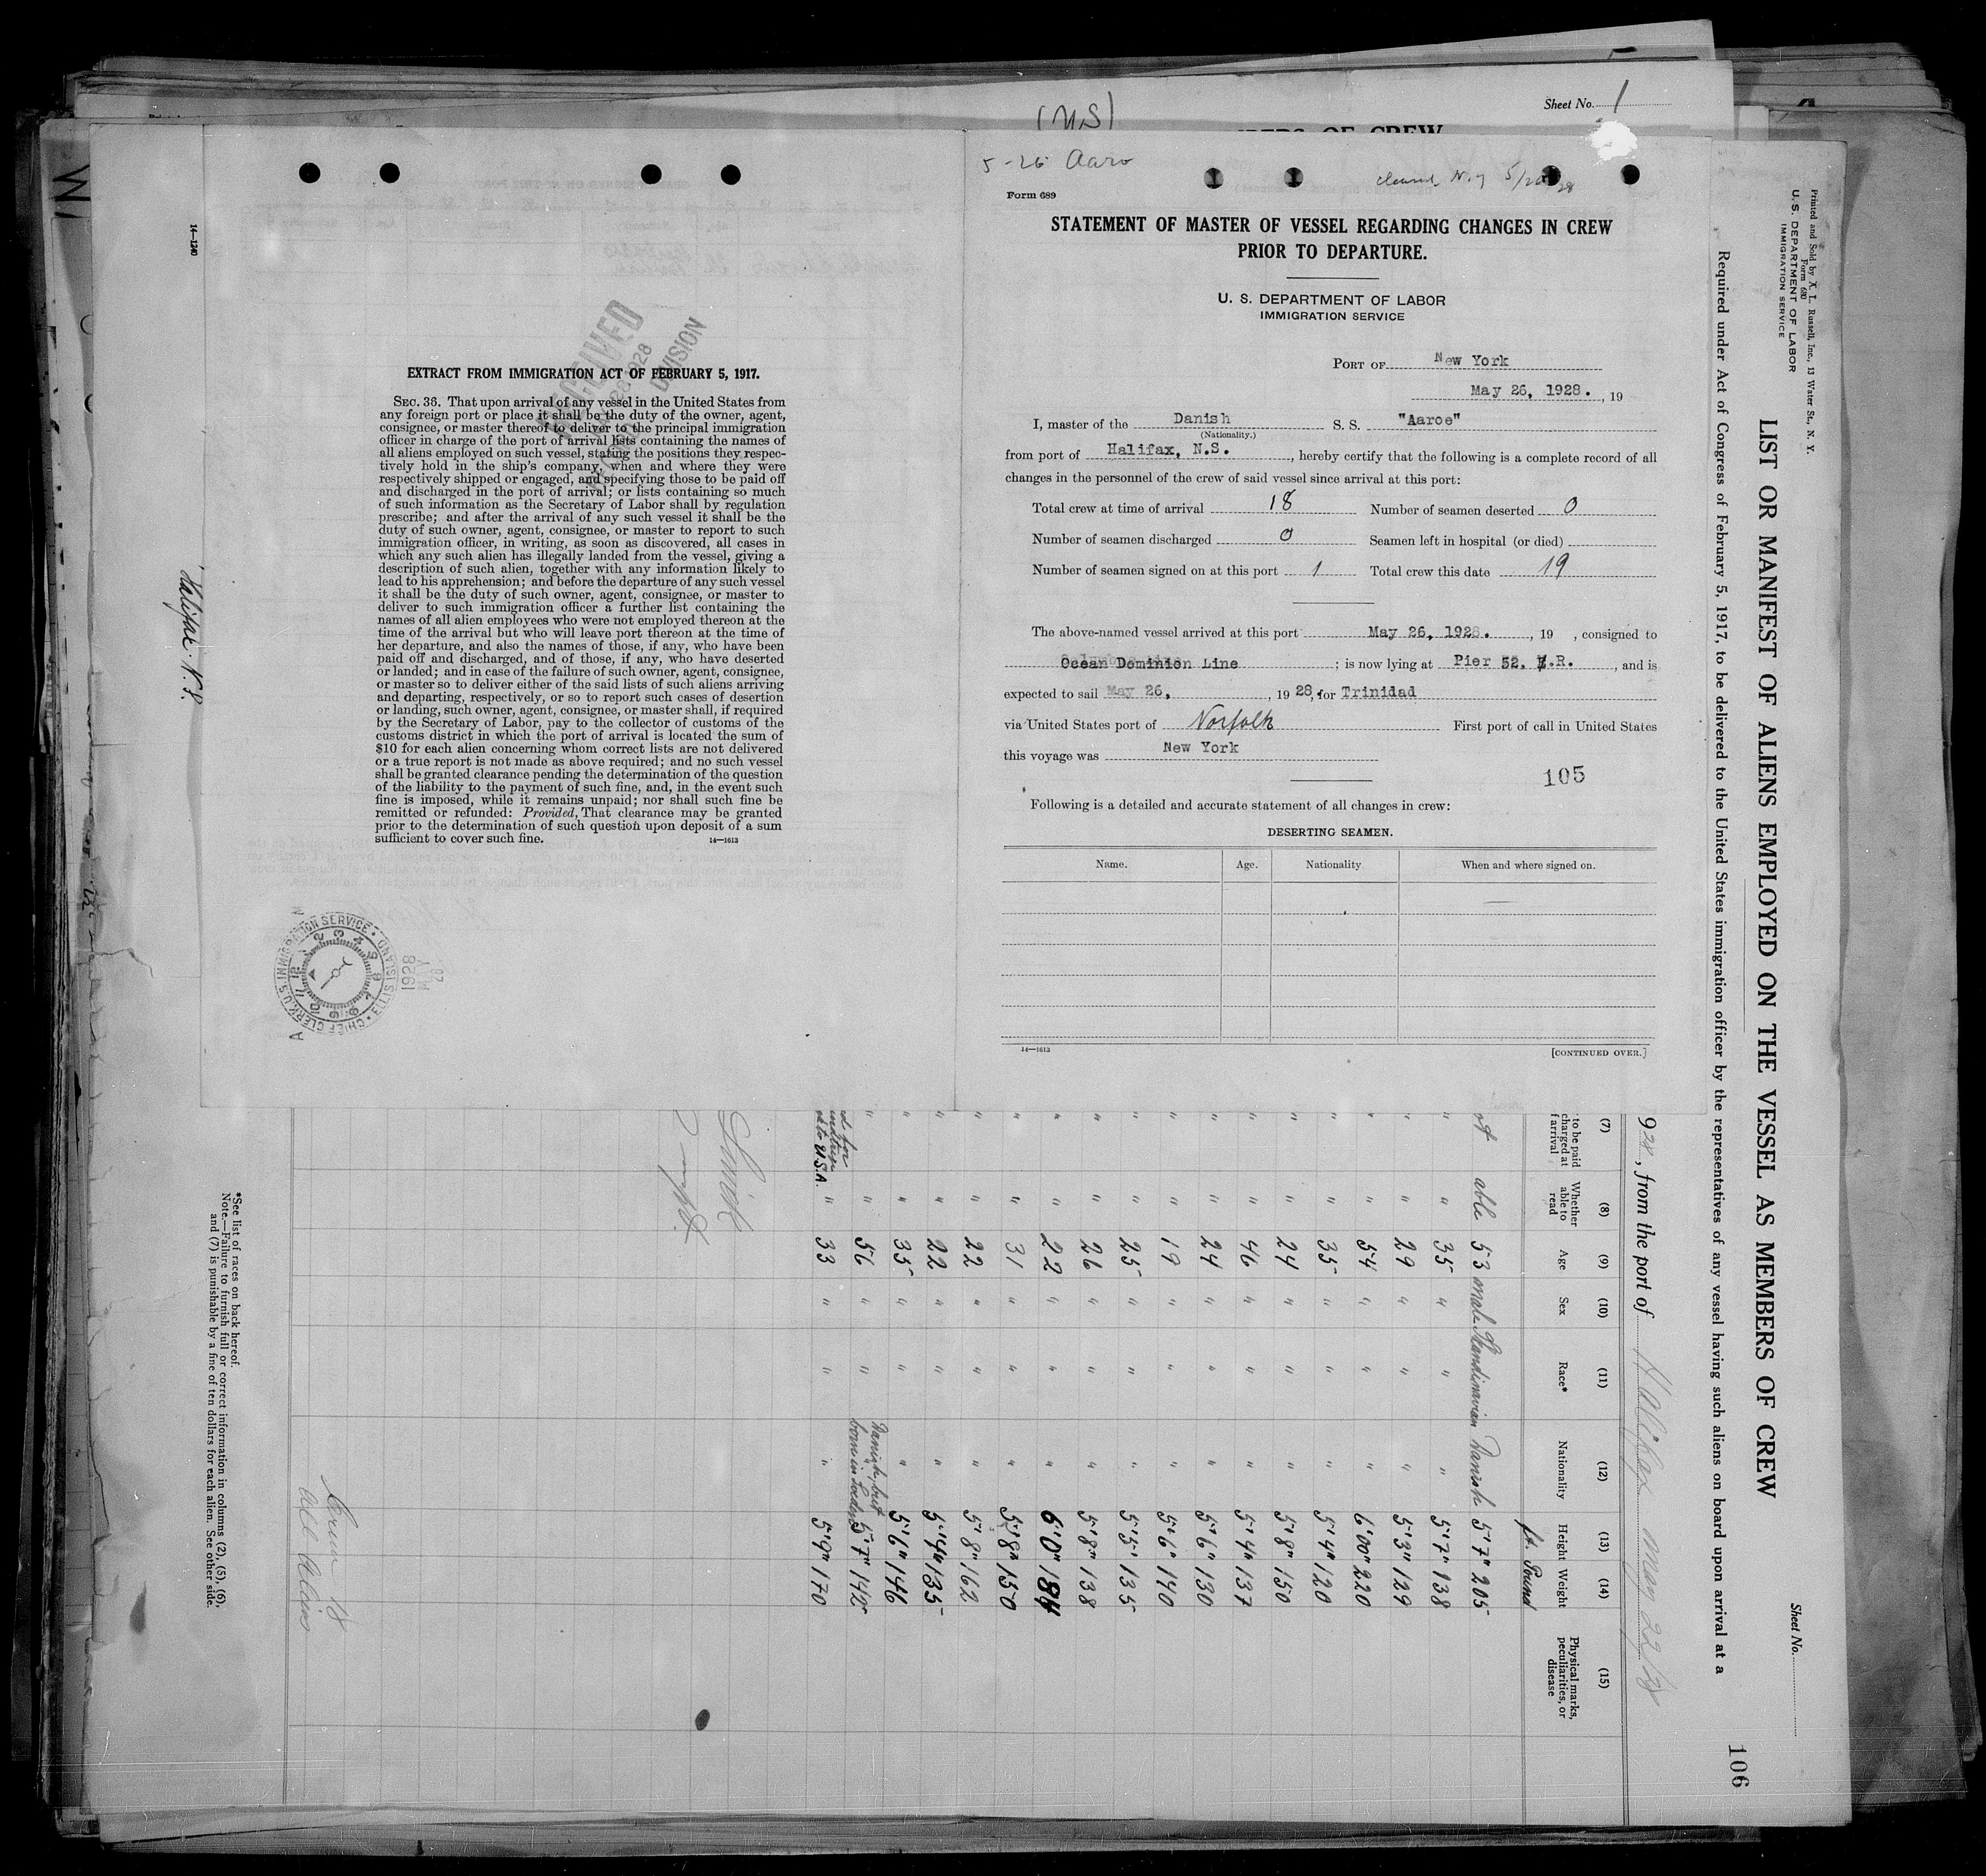 (US)
Sheet No. 1
5-26 Aaro
Form 689
STATEMENT OF MASTER OF VESSEL REGARDING CHANGES IN CREW
PRIOR TO DEPARTURE.
U. S. DEPARTMENT OF LABOR
IMMIGRATION SERVICE
PORT OF New York
May 26, 1928. , 19
I, master of the Danish S. S. "Aaroe"
(Nationality.)
from port of Halifax, N.S. , hereby certify that the following is a complete record of all
changes in the personnel of the crew of said vessel since arrival at this port:
Total crew at time of arrival 18 Number of seamen deserted 0
Number of seamen discharged 0 Seamen left in hospital (or died)
Number of seamen signed on at this port 1 Total crew this date 19
The above-named vessel arrived at this port May 26, 1928. , 19 , consigned to
Ocean Dominion Line ; is now lying at Pier 52, N.R. , and is
expected to sail May 26, , 19 28, for Trinidad
via United States port of Norfolk First port of call in United States
this voyage was New York
105
Following is a detailed and accurate statement of all changes in crew:
DESERTING SEAMEN.
Name. Age. Nationality. When and where signed on.
14—1613 [CONTINUED OVER.]
14—1240
Halifax. N.S.
RECEIVED
DIVISION
EXTRACT FROM IMMIGRATION ACT OF FEBRUARY 5, 1917.
SEC. 36. That upon arrival of any vessel in the United States from
any foreign port or place it shall be the duty of the owner, agent,
consignee, or master thereof to deliver to the principal immigration
officer in charge of the port of arrival lists containing the names of
all aliens employed on such vessel, stating the positions they respec-
tively hold in the ship's company, when and where they were
respectively shipped or engaged, and specifying those to be paid off
and discharged in the port of arrival; or lists containing so much
of such information as the Secretary of Labor shall by regulation
prescribe; and after the arrival of any such vessel it shall be the
duty of such owner, agent, consignee, or master to report to such
immigration officer, in writing, as soon as discovered, all cases in
which any such alien has illegally landed from the vessel, giving a
description of such alien, together with any information likely to
lead to his apprehension; and before the departure of any such vessel
it shall be the duty of such owner, agent, consignee, or master to
deliver to such immigration officer a further list containing the
names of all alien employees who were not employed thereon at the
time of the arrival but who will leave port thereon at the time of
her departure, and also the names of those, if any, who have been
paid off and discharged, and of those, if any, who have deserted
or landed; and in case of the failure of such owner, agent, consignee,
or master so to deliver either of the said lists of such aliens arriving
and departing, respectively, or so to report such cases of desertion
or landing, such owner, agent, consignee, or master shall, if required
by the Secretary of Labor, pay to the collector of customs of the
customs district in which the port of arrival is located the sum of
$10 for each alien concerning whom correct lists are not delivered
or a true report is not made as above required; and no such vessel
shall be granted clearance pending the determination of the question
of the liability to the payment of such fine, and, in the event such
fine is imposed, while it remains unpaid; nor shall such fine be
remitted or refunded: Provided, That clearance may be granted
prior to the determination of such question upon deposit of a sum
sufficient to cover such fine. 14—1613
CHIEF CLERK, U.S. IMMIGRATION SERVICE · ELLIS ISLAND
1928
MAY
28
Printed and Sold by A. L. Russell, Inc., 13 Water St., N. Y.
Form 680
U. S. DEPARTMENT OF LABOR
IMMIGRATION SERVICE
Sheet No.
LIST OR MANIFEST OF ALIENS EMPLOYED ON THE VESSEL AS MEMBERS OF CREW
Required under Act of Congress of February 5, 1917, to be delivered to the United States immigration officer by the representatives of any vessel having such aliens on board upon arrival at a
106
928, from the port of Halifax May 22/28
(7) (8) (9) (10) (11) (12) (13) (14) (15)
to be paid
charged at
f arrival
Whether
able to
read
Age Sex Race* Nationality Height Weight
Physical marks,
peculiarities, or
disease
ft. Pound
able 53 male Skandinavian Danish 5'7" 205
" " 35 " " " 5'7" 138
" " 29 " " " 5'3" 129
" " 54 " " " 6'00" 220
" " 35 " " " 5'4" 120
" " 24 " " " 5'8" 150
" " 46 " " " 5'4" 137
" " 24 " " " 5'6" 130
" " 19 " " " 5'6" 140
" " 25 " " " 5'5" 135
" " 26 " " " 5'8" 138
" " 22 " " " 6'0" 184
" " 31 " " " 5'8" 150
" " 22 " " " 5'8" 162
" " 22 " " " 5'4" 135
" " 35 " " " 5'6" 146
" " 56 " " Danish, but born in 5'7" 142
to U.S.A. " 33 " " " 5'9" 170
Crew 18
All Aliens
*See list of races on back hereof.
Note.—Failure to furnish full or correct information in columns (2), (5), (6),
and (7) is punishable by a fine of ten dollars for each alien. See other side.